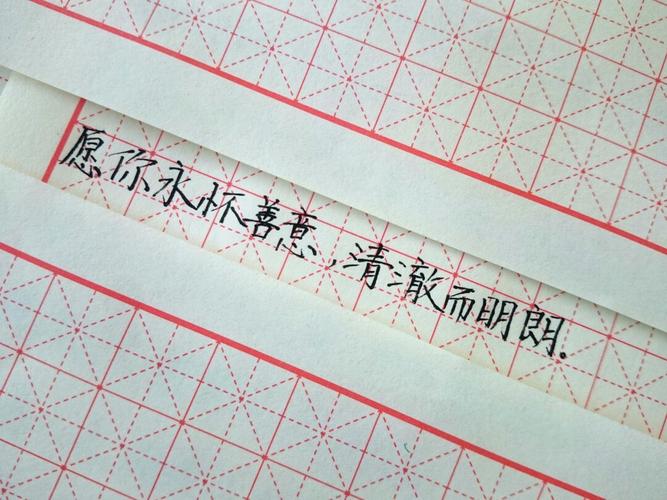 愿你永怀善意，清澈而明朗.